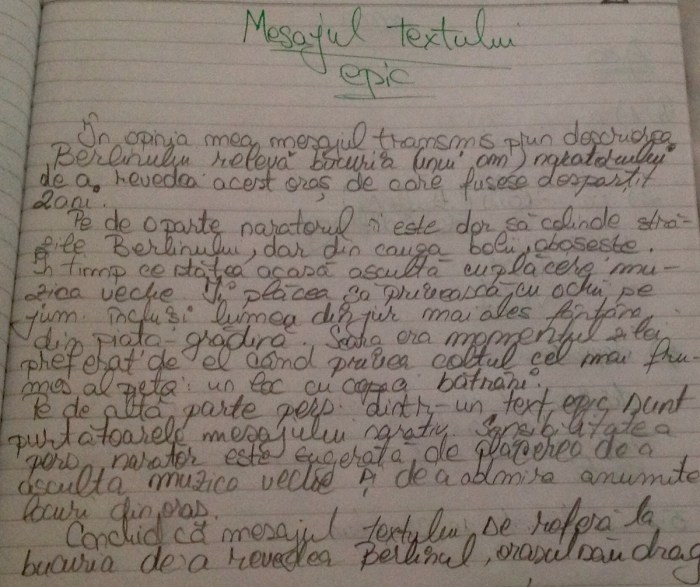 Mesajul textului
epic
În opinia mea, mesajul transmis prin descrierea
Berlinului relevă bucuria unui om, naratorului
de a revedea acest oraș de care fusese despărțit
2 ani.
Pe de o parte naratorul îi este dor să colinde stră-
zile Berlinului, dar din cauza bolii, obosește.
În timp ce stătea acasă asculta cu plăcere mu-
zica veche. Îi plăcea să privească cu ochii pe
jum. închiși lumea din jur mai ales fântâna
din piața-grădină. Seara era momentul zilei
preferat de el când privea colțul cel mai fru-
mos al pieței: un loc cu copaci bătrâni.
Pe de altă parte pers. dintr-un text epic sunt
purtătoarele mesajului narativ. Sensibilitatea
pers. narator este sugerată de plăcerea de a
asculta muzica veche și de a admira anumite
locuri din oraș.
Conchid că mesajul textului se referă la
bucuria de a revedea Berlinul, orașul său drag